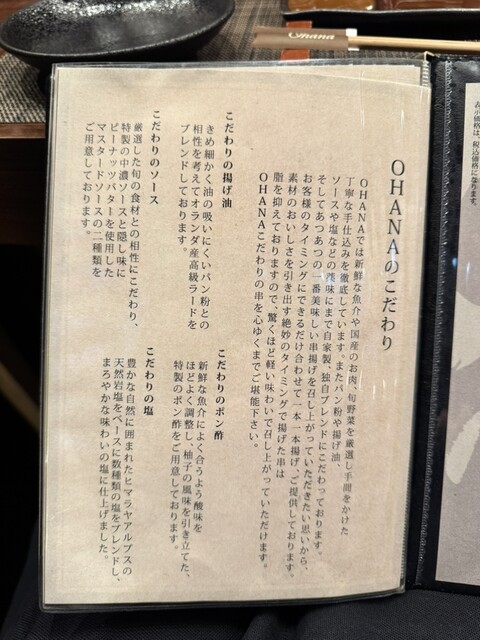 Ohana
表示価格は、税込価格になります。
OHANAのこだわり
OHANAでは新鮮な魚介や国産のお肉、旬野菜を厳選し手間をかけた
丁寧な手仕込みを徹底しています。またパン粉や揚げ油、
ソースや塩などの薬味にまで自家製、独自ブレンドにこだわっております。
そしてあつあつの一番美味しい串揚げを召し上がっていただきたい思いから、
お客様のタイミングにできるだけ合わせて一本一本揚げ、ご提供しております。
素材のおいしさを引き出す絶妙のタイミングで揚げた串は
脂を抑えておりますので、驚くほど軽い味わいで召し上がっていただけます。
OHANAこだわりの串を心ゆくまでご堪能下さい。
こだわりの揚げ油
きめ細かく油の吸いにくいパン粉との
相性を考えてオランダ産高級ラードを
ブレンドしております。
こだわりのポン酢
新鮮な魚介によく合うよう酸味を
ほどよく調整し、柚子の風味を引き立てた、
特製のポン酢をご用意しております。
こだわりのソース
厳選した旬の食材との相性にこだわり、
特製の中濃ソースと隠し味に
ピーナッツバターを使用した
マスタードソースの二種類を
ご用意しております。
こだわりの塩
豊かな自然に囲まれたヒマラヤアルプスの
天然岩塩をベースに数種類の塩をブレンドし、
まろやかな味わいの塩に仕上げました。